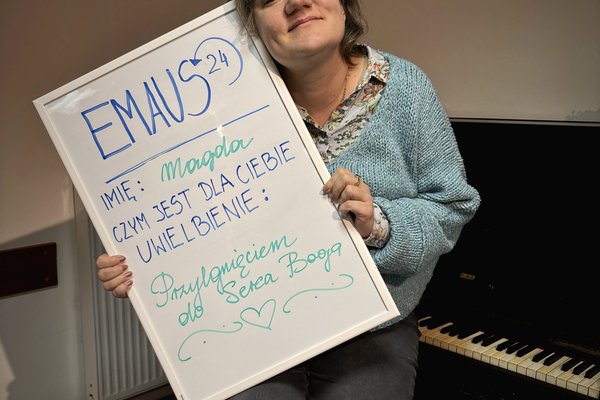 EMAUS 24
IMIĘ: Magda
CZYM JEST DLA CIEBIE
UWIELBIENIE:
Przylgnięciem
do Serca Boga